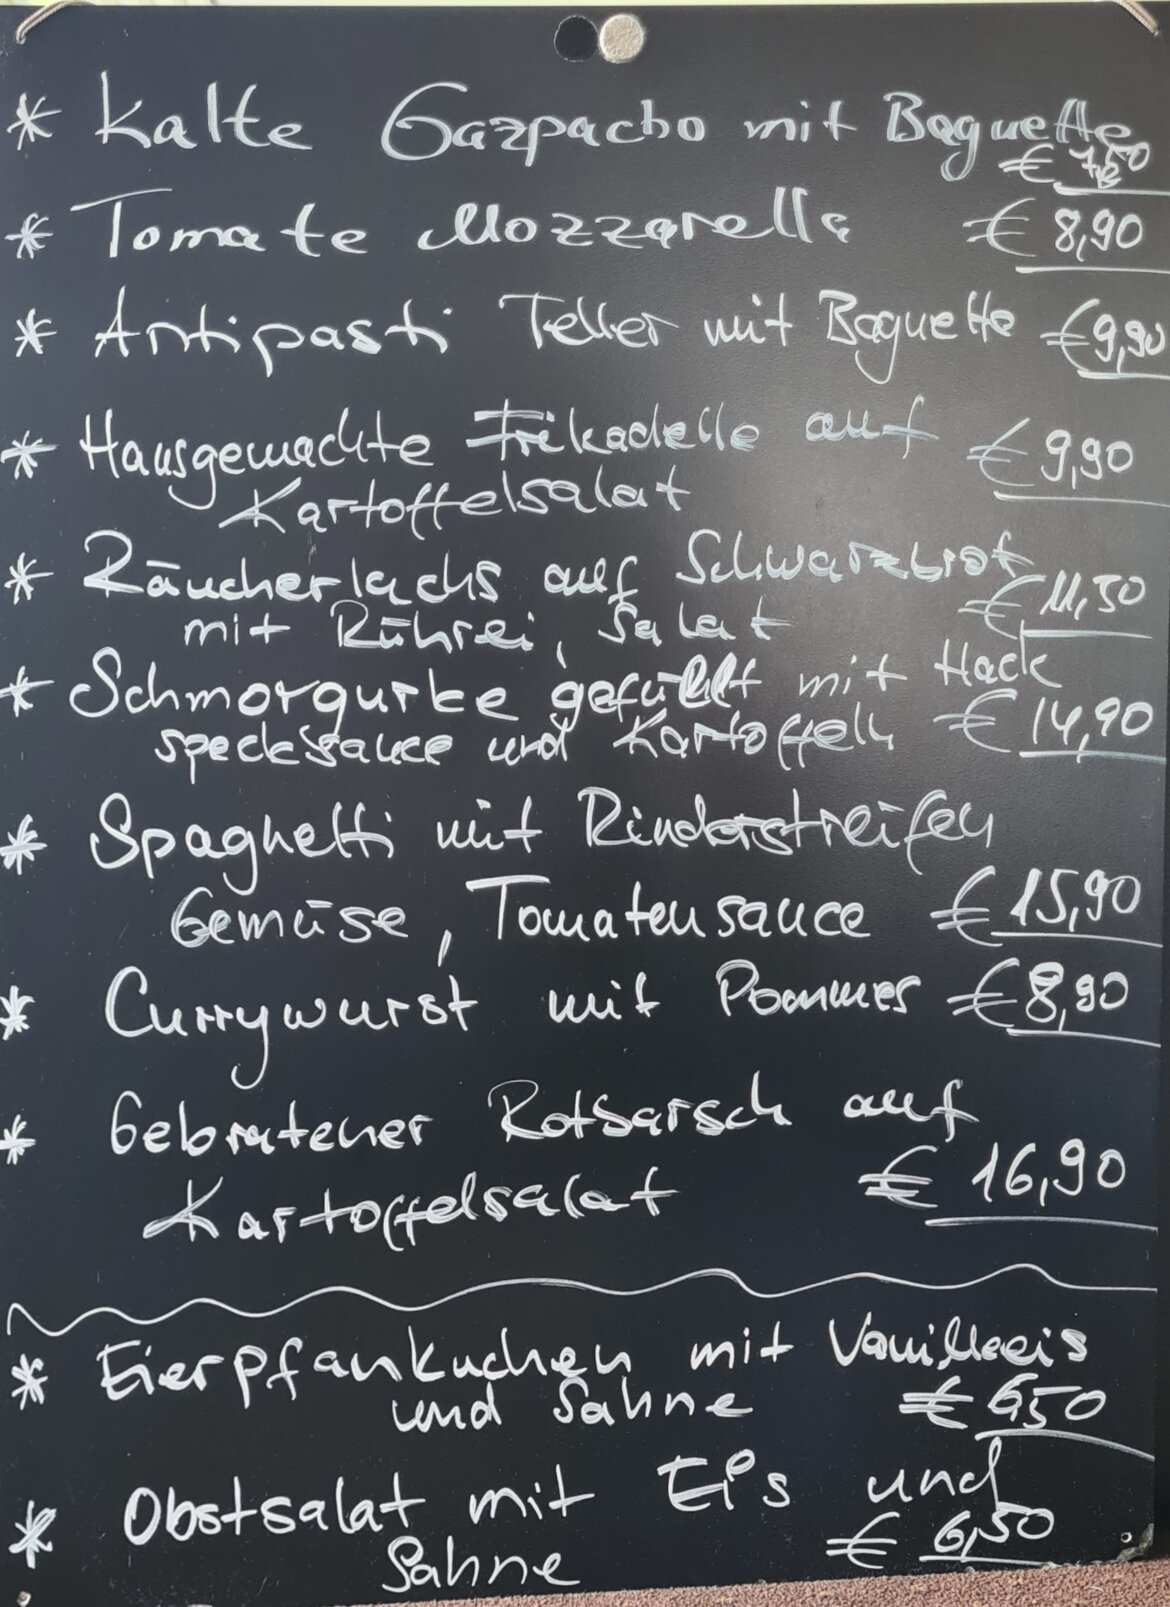 * Kalte Gazpacho mit Baguette
€ 7,50
* Tomate Mozzarella € 8,90
* Antipasti Teller mit Baguette € 9,90
* Hausgemachte Frikadelle auf € 9,90
Kartoffelsalat
* Räucherlachs auf Schwarzbrot
mit Rührei, Salat € 11,50
* Schmorgurke gefüllt mit Hack
specksauce und Kartoffeln € 14,90
* Spaghetti mit Rinderstreifen
Gemüse, Tomatensauce € 15,90
* Currywurst mit Pommes € 8,90
* Gebratener Rotsarsch auf
Kartoffelsalat € 16,90
* Eierpfankuchen mit Vanilleeis
und Sahne € 6,50
* Obstsalat mit Eis und
Sahne € 6,50